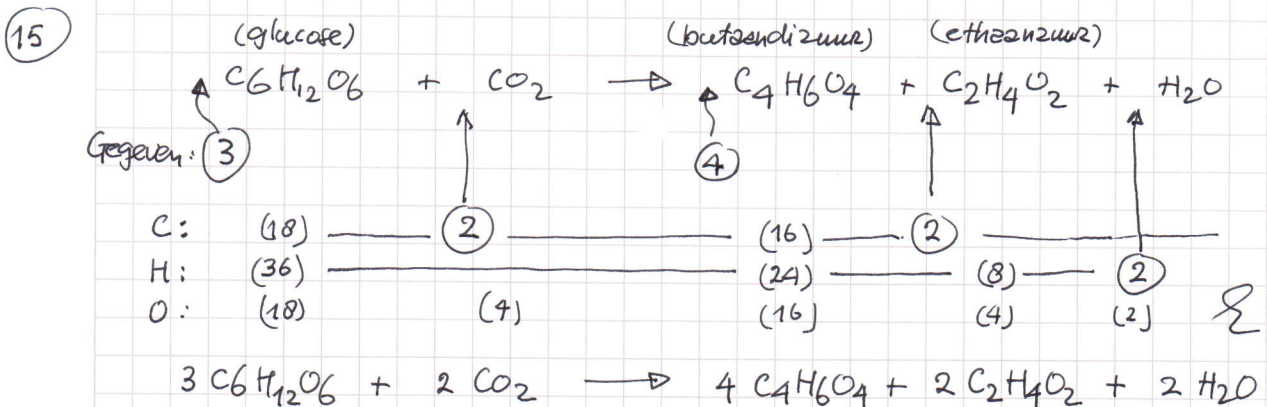 15 (glucose) (butaandizuur) (ethaanzuur)
C6H12O6 + CO2 → C4H6O4 + C2H4O2 + H2O
Gegeven: 3 4
C: (18) 2 (16) 2
H: (36) (24) (8) 2
O: (18) (4) (16) (4) (2)
3 C6H12O6 + 2 CO2 → 4 C4H6O4 + 2 C2H4O2 + 2 H2O